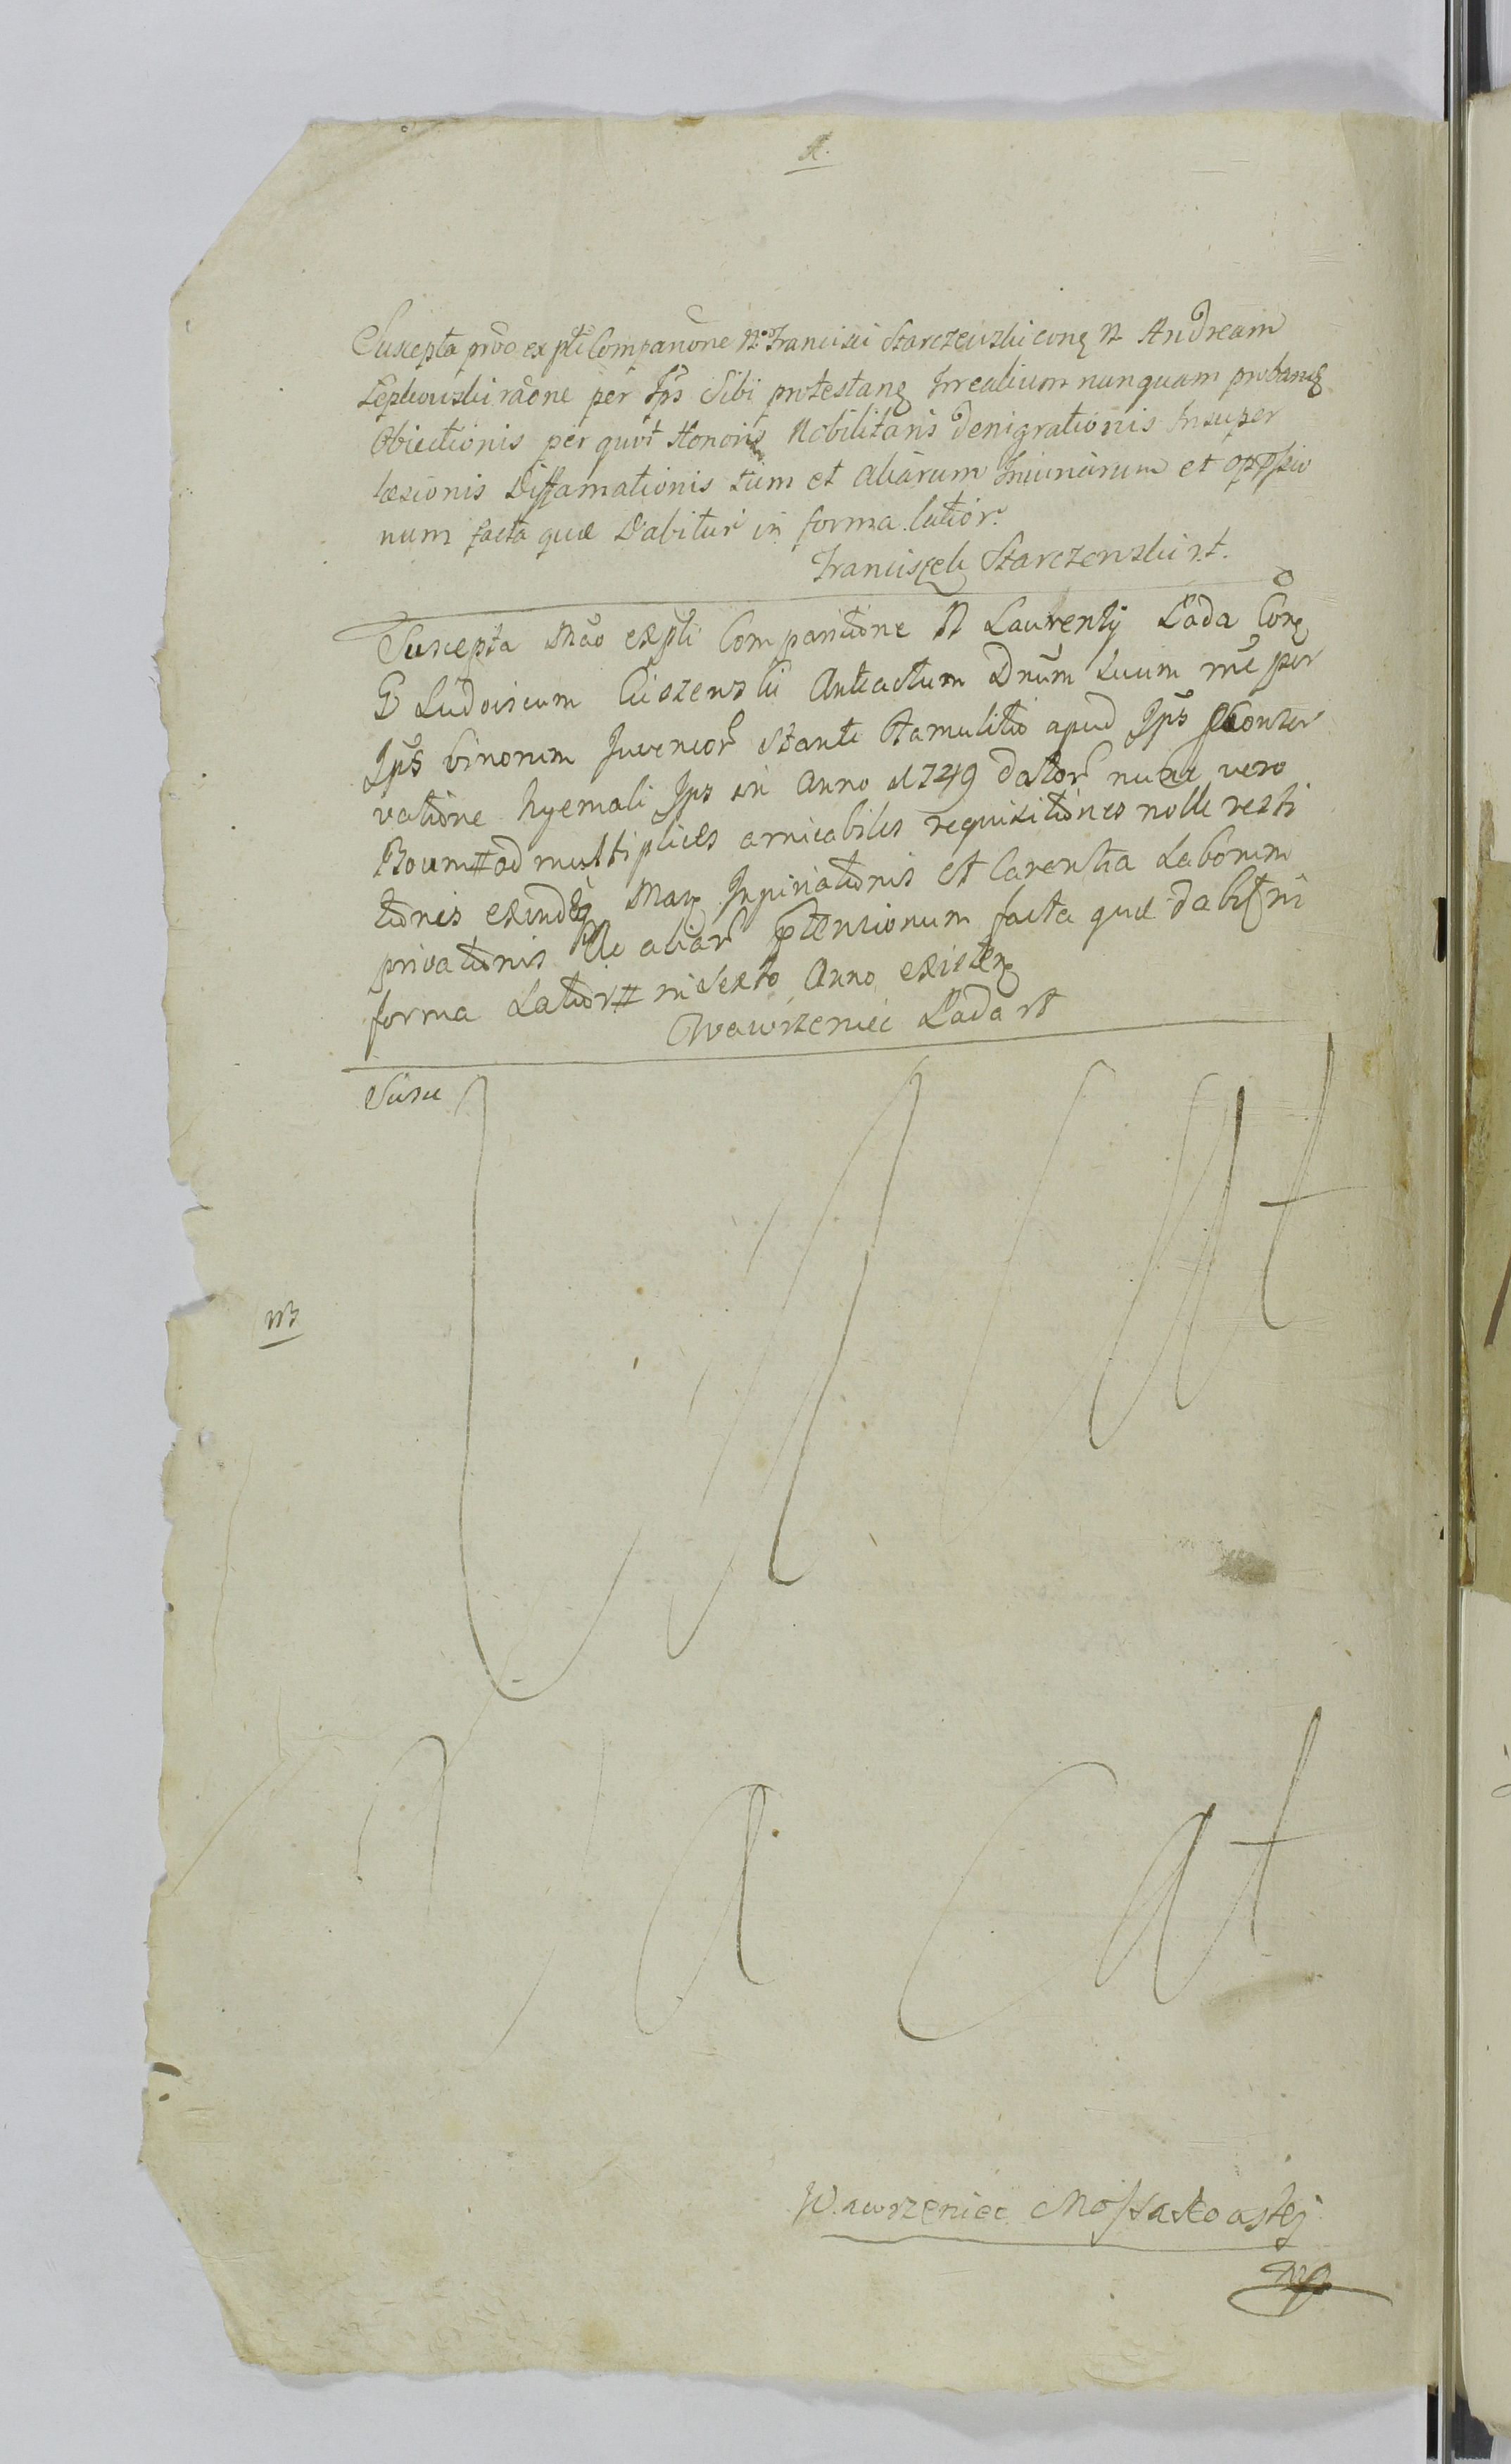 A.
Suscepta prōo ex pti Companōne N. Francisci Starczewski conq N Andream
Lępkowski raōne per Ips Sibi protestanq Irrealium nunquam probandq
Obiectionis per quōt Honoris Nobilitaris denigrationis Insuper
læsionis Diffamationis tum et aliarum Iniuriarum et oppssio
num facta quæ Dabitur in forma latior.
Franciszek Starczewski r.t.
Suscepta Māo ex pti Comparitione N Laurentÿ Łada Conq
G Ludovicum Ciszewski Anteactum Dnum Suum rne per
Ips binorum Juvencor Stante Famulitio apud Ips conser
vatione hyemali Ips in Anno 1749 dator nunc vero
Boum # ad multiplices amicabiles requisitiones nolle resti
tionis exindeq Maq Injuriationis et Carentia Laborum
privationis Ac aliar ptensionum facta quæ dabit in
forma Latior # in Sexto Anno existenq
Wawrzeniec Łada rt
Susce
NB
Vacat
Wawrzeniec Mossakowskj
mp